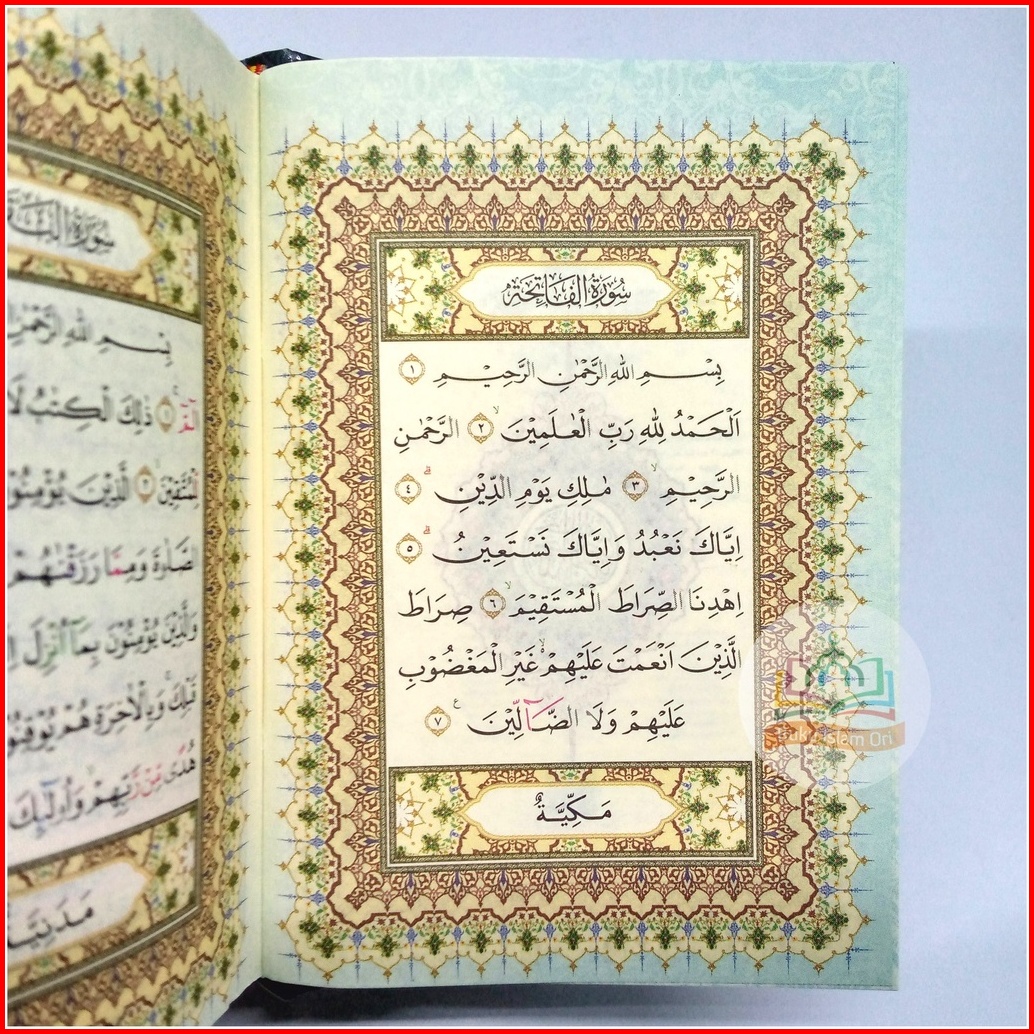 سُورَةُ الْفَاتِحَةِ
بِسْمِ اللّٰهِ الرَّحْمٰنِ الرَّحِيْمِ ١
اَلْحَمْدُ لِلّٰهِ رَبِّ الْعٰلَمِيْنَۙ ٢ الرَّحْمٰنِ
الرَّحِيْمِۙ ٣ مٰلِكِ يَوْمِ الدِّيْنِۗ ٤
اِيَّاكَ نَعْبُدُ وَاِيَّاكَ نَسْتَعِيْنُۗ ٥
اِهْدِنَا الصِّرَاطَ الْمُسْتَقِيْمَۙ ٦ صِرَاطَ
الَّذِيْنَ اَنْعَمْتَ عَلَيْهِمْۙ غَيْرِ الْمَغْضُوْبِ
عَلَيْهِمْ وَلَا الضَّاۤلِّيْنَ ࣖ ٧
مَكِّيَّةٌ
سُورَةُ
بِسْمِ اللّٰهِ
الۤمّۤۚ ١ ذٰلِكَ الْكِتٰبُ
لِّلْمُتَّقِيْنَۙ ٢ الَّذِيْنَ يُؤْمِنُوْنَ
الصَّلٰوةَ وَمِمَّا رَزَقْنٰهُمْ
وَالَّذِيْنَ يُؤْمِنُوْنَ بِمَآ اُنْزِلَ
قَبْلِكَۚ وَبِالْاٰخِرَةِ هُمْ يُوْقِنُوْنَ
هُدًى مِّنْ رَّبِّهِمْۙ وَاُولٰۤىِٕكَ
مَدَنِيَّةٌ
Buku Islam Ori